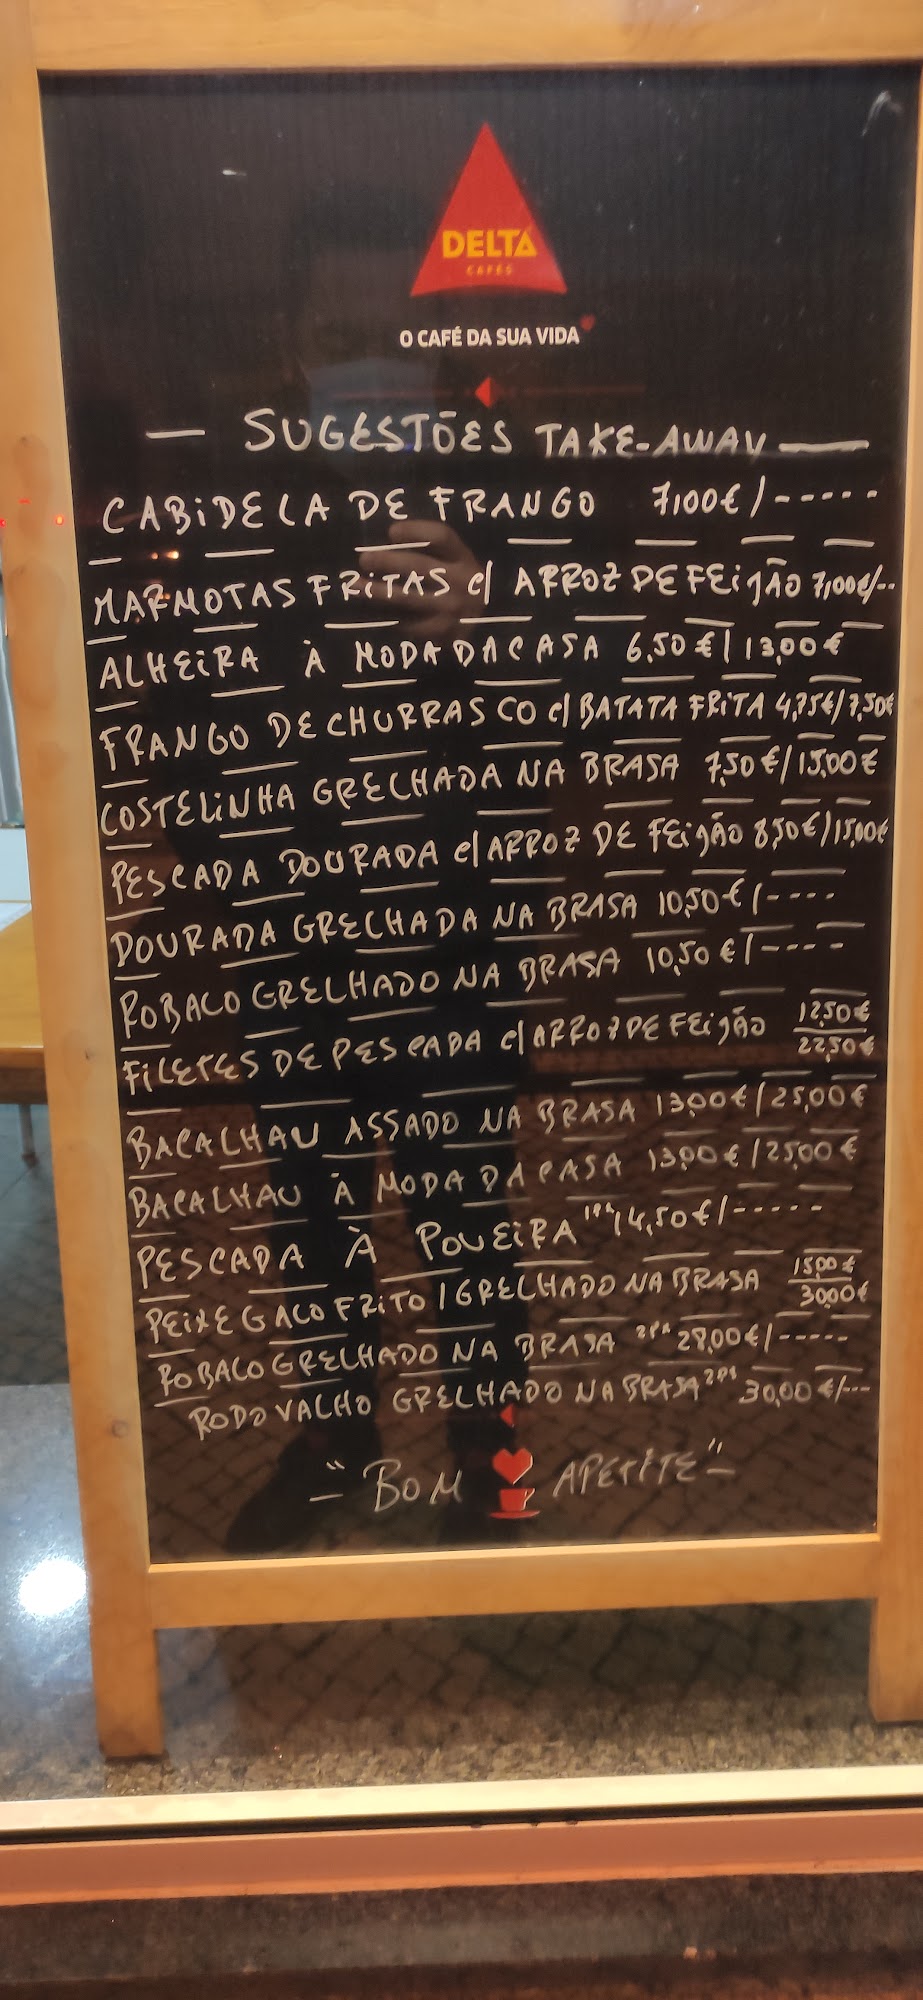 DELTA
CAFÉS
O CAFÉ DA SUA VIDA
— SUGESTÕES TAKE-AWAY —
CABIDELA DE FRANGO 7,00€/-----
MARMOTAS FRITAS c/ ARROZ DE FEIJÃO 7,00€/--
ALHEIRA À MODA DA CASA 6,50€/13,00€
FRANGO DE CHURRASCO c/ BATATA FRITA 4,75€/7,50€
COSTELINHA GRELHADA NA BRASA 7,50€/15,00€
PESCADA DOURADA c/ ARROZ DE FEIJÃO 8,50€/15,00€
DOURADA GRELHADA NA BRASA 10,50€/----
ROBALO GRELHADO NA BRASA 10,50€/----
FILETES DE PESCADA c/ ARROZ DE FEIJÃO 12,50€
22,50€
BACALHAU ASSADO NA BRASA 13,00€/25,00€
BACALHAU À MODA DA CASA 13,00€/25,00€
PESCADA À POVEIRA 14,50€/-----
PEIXE GALO FRITO / GRELHADO NA BRASA 15,00€
30,00€
ROBALO GRELHADO NA BRASA 28,00€/-----
RODOVALHO GRELHADO NA BRASA 30,00€/---
–"BOM APETITE"–